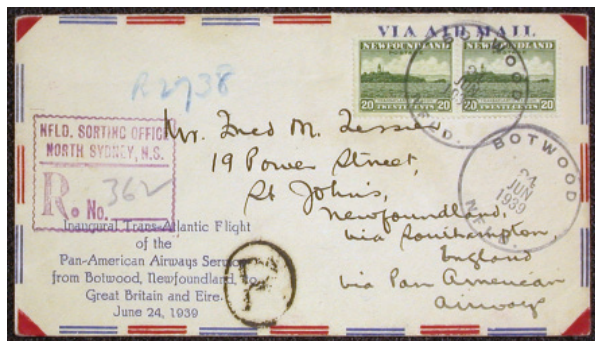 VIA AIR MAIL
NEWFOUNDLAND NEWFOUNDLAND
20 TWENTY CENTS 20 20 TWENTY CENTS 20
BOTWOOD
JUN
NFLD.
R2738
NFLD. SORTING OFFICE
NORTH SYDNEY, N.S.
R. No. 362
Mr. Fred M. Tessier
19 Power Street,
St John's,
Newfoundland,
via Southampton,
England
via Pan American
Airways
BOTWOOD
24
JUN
1939
Inaugural Trans-Atlantic Flight
of the
Pan-American Airways Service
from Botwood, Newfoundland, to
Great Britain and Eire.
June 24, 1939